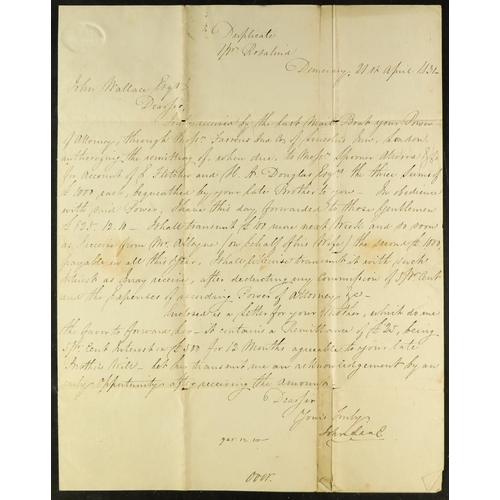 Duplicate
pr Rosalind
Demerary, 21st April 183
John Wallace Esqr
Dearsir,
I received by the last Mail Boat your Power
of Attorney, through Messrs of Lincolns Inn, London
authorizing the remitting of, when due, to Messrs Spooner &Co
for Account of J. Fletcher and H. A Douglas Esqrs the three Sums of
£1000 each, bequeathed by your late Brother to you – In obedience
with said Power, I have this day forwarded to those Gentlemen
£ 925. 12. 10 – I shall transmit £ 60 more next Week and so soon
as I receive from Mr. Alleyne (on behalf of his Wife) the second £ 1000,
payable in all this , I shall likewise transmit it with such
Interest as I may receive, after deducting my Commission of 5 Pr Cent
and the expenses of Power of Attorney, &c –
Enclosed is a letter for your Mother, which do me
the favor to forward, – it contains a Remittance of £ 25, being
5 Pr Cent Interest on £ 500 for 12 Months agreeable to your late
Brothers Will – Let me transmit me an acknowledgement by an
early opportunity after receiving the amount –
Dearsir
Yours truly
John
925. 12. 10
Over.